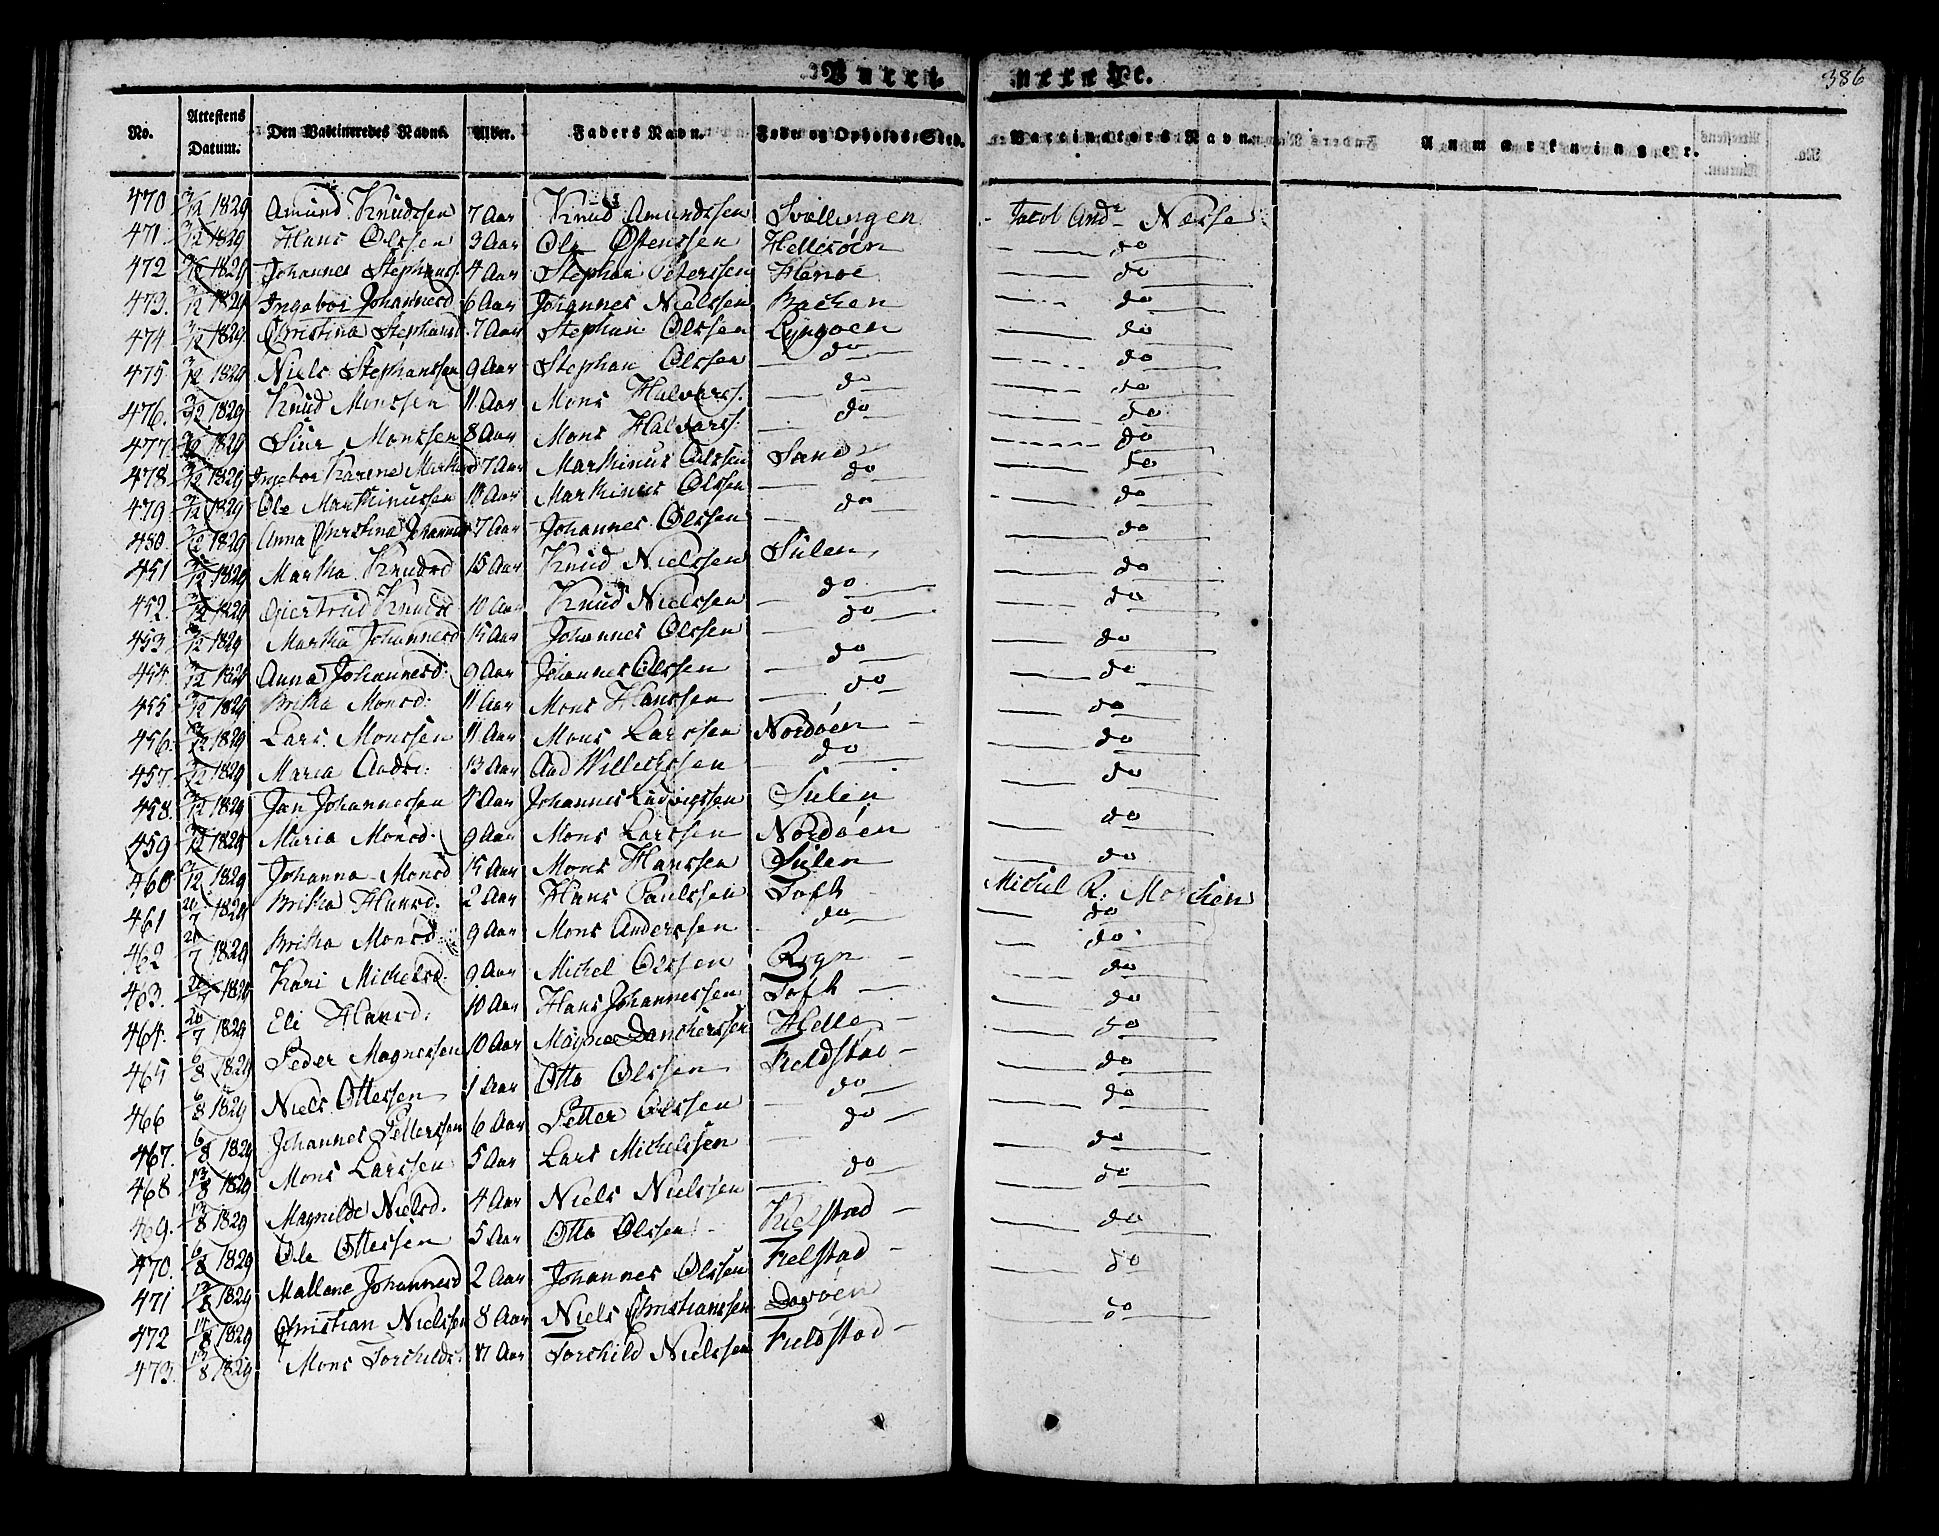 Vacci nerede.
386
No. Attestens Datum. Den Vakcineredes Navn. Alder. Faders Navn. Føde og Opholds Sted. Vaccinateurs Navn. Anmærkninger.
470 3/12 1829 Amund Knudssen 7 Aar Knud Amundssen Svællingen Jacob And: Nesse
471. 3/12 1829 Hans Olssen 3 Aar Ole Østenssen Hellesöen do
472 3/12 1829 Johannes Stephanss. 4 Aar Stephan Peterssen Hernöe do
473. 3/12 1829 Ingebor Johannesd 6 Aar Johannes Nielssen Backen do
474 3/12 1829 Christina Stephansd. 7 Aar Stephan Olssen Lyngöen do
475 3/12 1829 Niels Stephanssen 9 Aar Stephan Olssen do do
476. 3/12 1829 Knud Monssen 11 Aar Mons Halvorss. do do
477 3/12 1829 Siur Monssen 8 Aar Mons Halvorss: do do
478 3/12 1829 Ingebor Karine Marthind 7 Aar Marthinus Olssen Sand do
479 3/12 1829 Ole Marthinussen 10 Aar Marthinus Olssen do do
450. 3/12 1829 Anna Christina Johannesd 7 Aar Johannes Olssen do do
451 3/12 1829 Martha Knudsd 15 Aar Knud Nielssen Sulen do
452. 3/12 1829 Giertrud Knudsd 10 Aar Knud Nielssen do do
453. 3/12 1829 Martha Johannesd 15 Aar Johannes Olssen do do
454. 3/12 1829 Anna Johannesd. 9 Aar Johannes Olssen do do
455 3/12 1829 Britha Monsd. 11 Aar Mons Hanssen do do
456. 3/12 1829 Lars Monssen 11 Aar Mons Larssen Nordöen do
457. 3/12 1829 Maria Andsd: 13 Aar And Willechssen do do
458. 3/12 1829 Jan Johannessen 4 Aar Johannes Ludvigssen Sulen do
459 3/12 1829 Maria Monsd. 9 Aar Mons Larssen Nordöen do
460 3/12 1829 Johanna Monsd 15 Aar Mons Hanssen Sulen do
461 20/7 1829 Britha Hansd. 2 Aar Hans Paulssen Toft Michel R. Morchen
462 20/7 1829 Britha Monsd 9 Aar Mons Anderssen do do
463. 20/7 1829 Kari Michelsd. 9 Aar Michel Olssen Rygn do
464. 20/7 1829 Eli Hansd. 10 Aar Hans Johannessen Toft do
465 6/8 1829 Peder Magnessen 10 Aar Magne Danchertssen Helle do
466 6/8 1829 Niels Ottessen 1 Aar Otto Olssen Fieldstad do
467. 6/8 1829 Johannes Petterssen 6 Aar Petter Olssen do do
468 13/8 1829 Mons Larssen 5 Aar Lars Michelssen do do
469. 13/8 1829 Magnilde Nielsd. 4 Aar Niels Nielssen do do
470. 6/8 1829 Ole Ottessen 5 Aar Otto Olssen Fielstad do
471 13/8 1829 Mallene Johannesd 2 Aar Johannes Olssen Fielstad do
472 14/8 1829 Christian Nielssen 8 Aar Niels Christianssen Davöen do
473. 13/8 1829 Mons Torchilds. 7 Aar Torchild Nielssen Fieldstad do